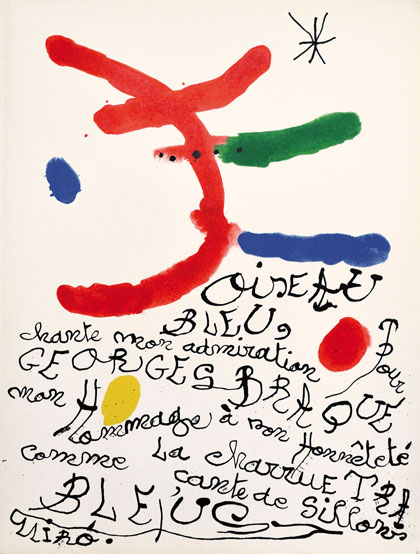 OiSEAU
BLEU,
chante mon admiration Pour
GEORGES BRAQUE
mon Hommage à son Honnêteté
comme La charrue TRA
cante de Sillons
BLEUS
Miró.